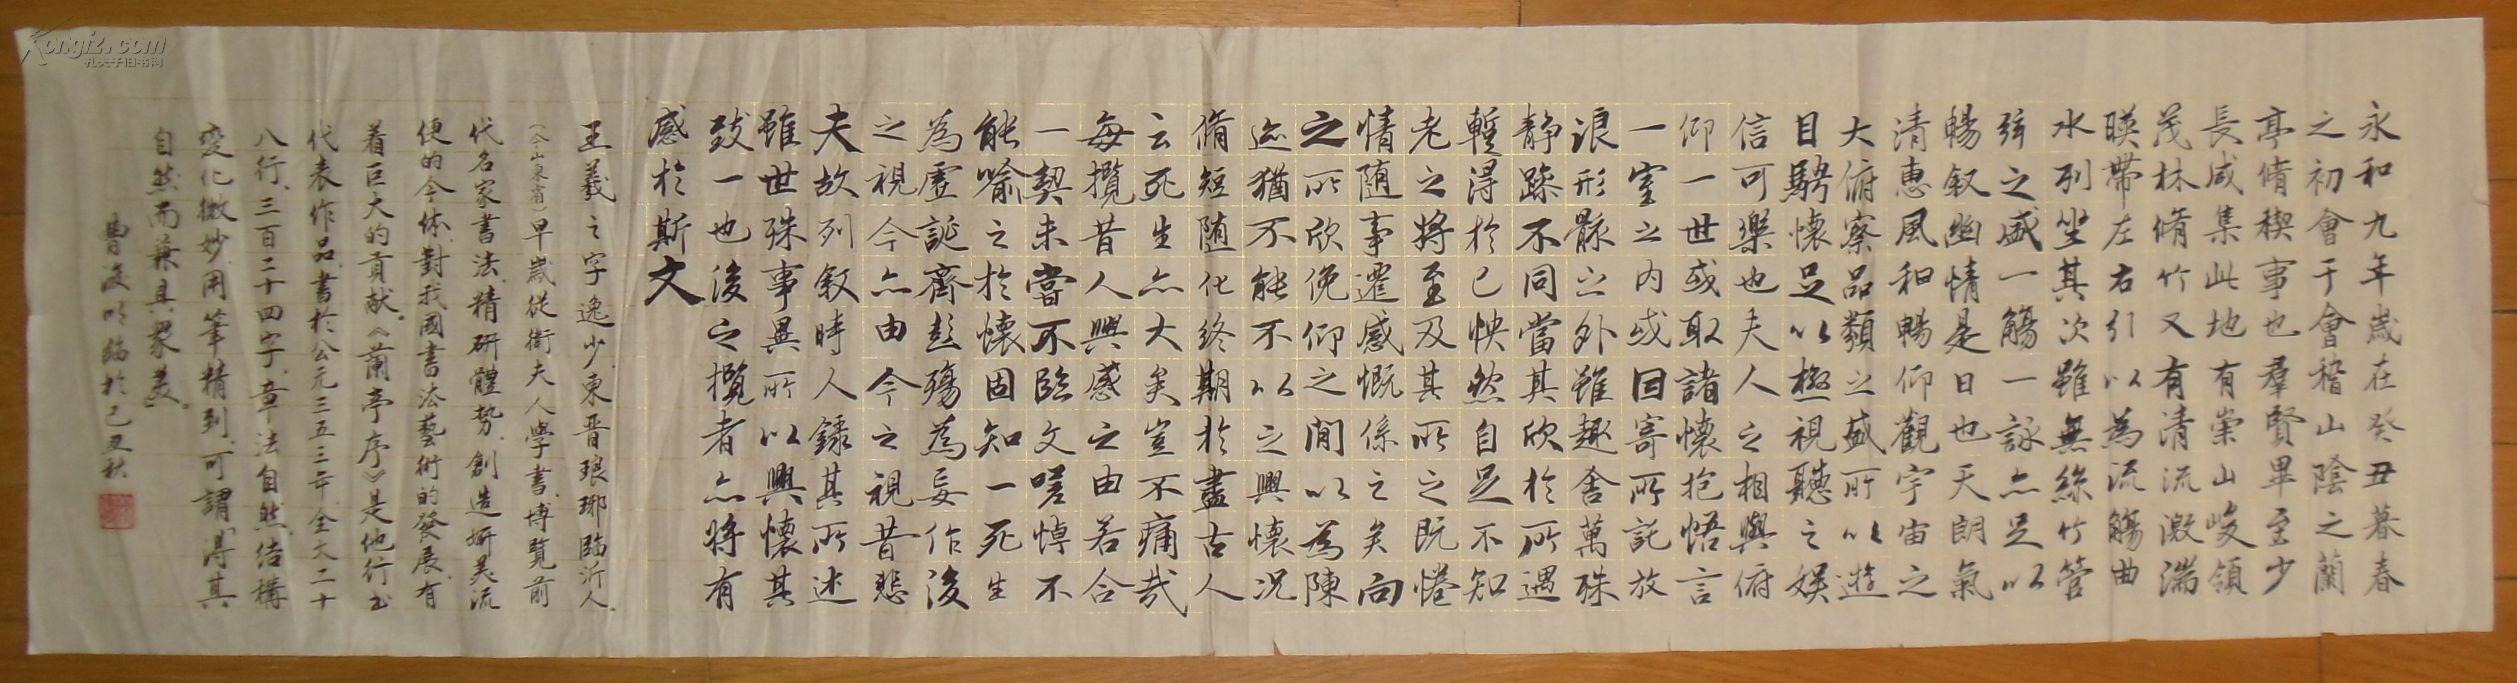 永和九年歲在癸丑暮春
之初會于會稽山陰之蘭
亭脩稧事也羣賢畢至少
長咸集此地有崇山峻領
茂林脩竹又有清流激湍
暎帶左右引以為流觴曲
水列坐其次雖無絲竹管
弦之盛一觴一詠亦足以
暢叙幽情是日也天朗氣
清惠風和暢仰觀宇宙之
大俯察品類之盛所以遊
目騁懷足以極視聽之娛
信可樂也夫人之相與俯
仰一世或取諸懷抱悟言
一室之内或因寄所託放
浪形骸之外雖趣舍萬殊
靜躁不同當其欣於所遇
蹔得於己怏然自足不知
老之將至及其所之既惓
情随事遷感慨係之矣向
之所欣俛仰之間以為陳
迹猶不能不以之興懷况
脩短随化終期於盡古人
云死生亦大矣豈不痛哉
每攬昔人興感之由若合
一契未嘗不臨文嗟悼不
能喻之於懷固知一死生
為虛誕齊彭殤為妄作後
之視今亦由今之視昔悲
夫故列叙時人錄其所述
雖世殊事異所以興懷其
致一也後之攬者亦將有
感於斯文
王羲之字逸少，東晋琅琊臨沂人，
（今山東省）早歲從衛夫人學書，博覽前
代名家書法，精研體勢，創造妍美流
便的今体，對我國書法藝術的發展，有
着巨大的貢献。《蘭亭序》是他行书
代表作品，書於公元三五三年，全文二十
八行，三百二十四字，章法自然，结構
變化微妙，用筆精到，可謂“得其
自然而兼具衆美”。
曹俊明臨於己丑秋
Kongfz.com
孔夫子旧书网